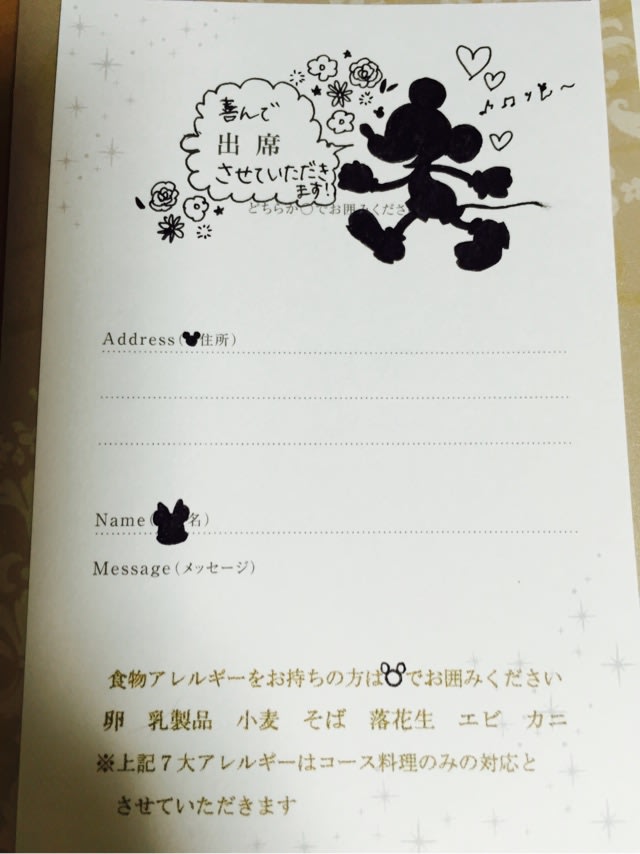 喜んで
出席
させていただき
ます!
どちらか○でお囲みくださ
♪♫ッと～
Address(住所)
Name(名)
Message(メッセージ)
食物アレルギーをお持ちの方は○でお囲みください
卵 乳製品 小麦 そば 落花生 エビ カニ
※上記7大アレルギーはコース料理のみの対応と
させていただきます